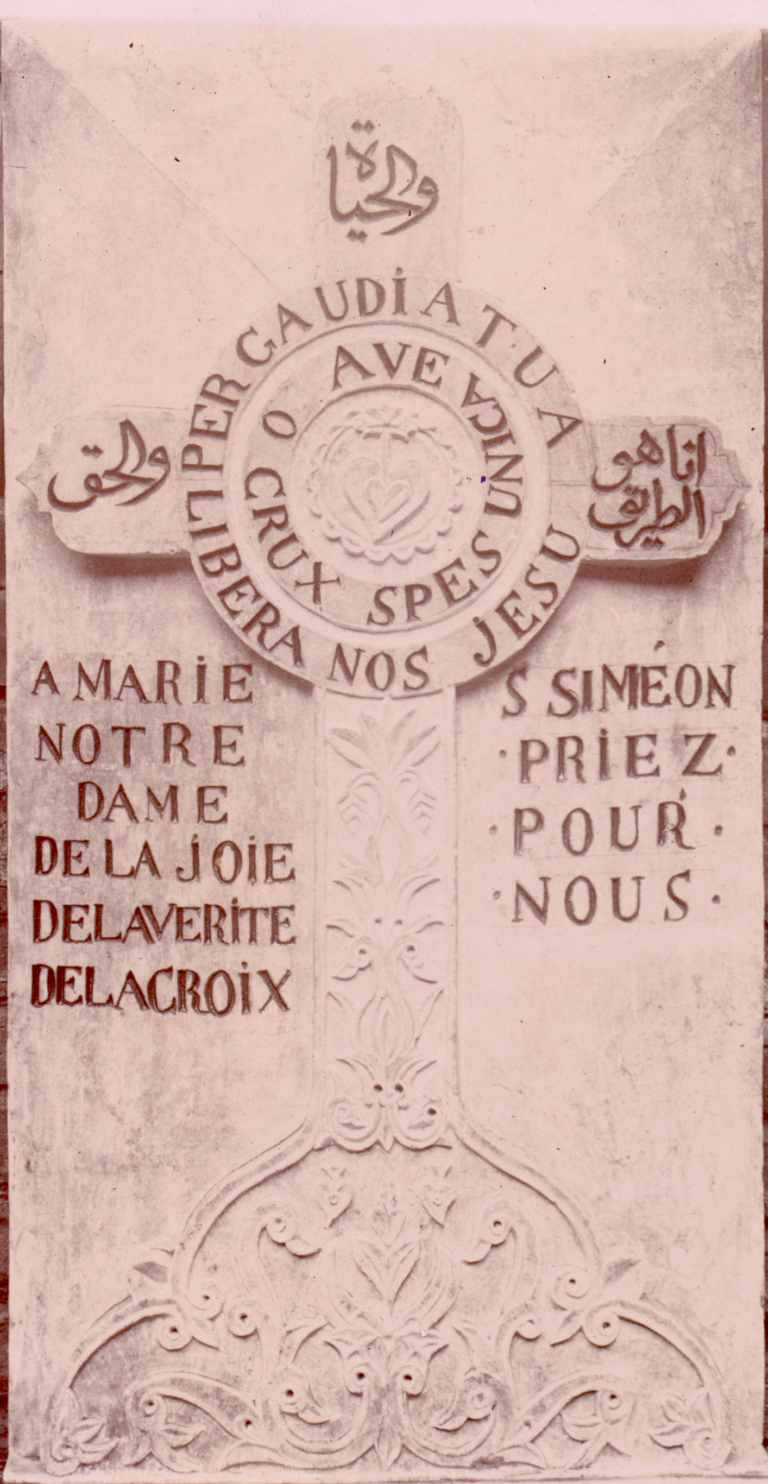 والحياة
PER GAUDIA TUA
LIBERA NOS JESU
O CRUX AVE
SPES UNICA
انا هو
الطريق
والحق
A MARIE
NOTRE
DAME
DE LA JOIE
DE LA VERITE
DE LA CROIX
S SIMÉON
·PRIEZ·
·POUR·
·NOUS·